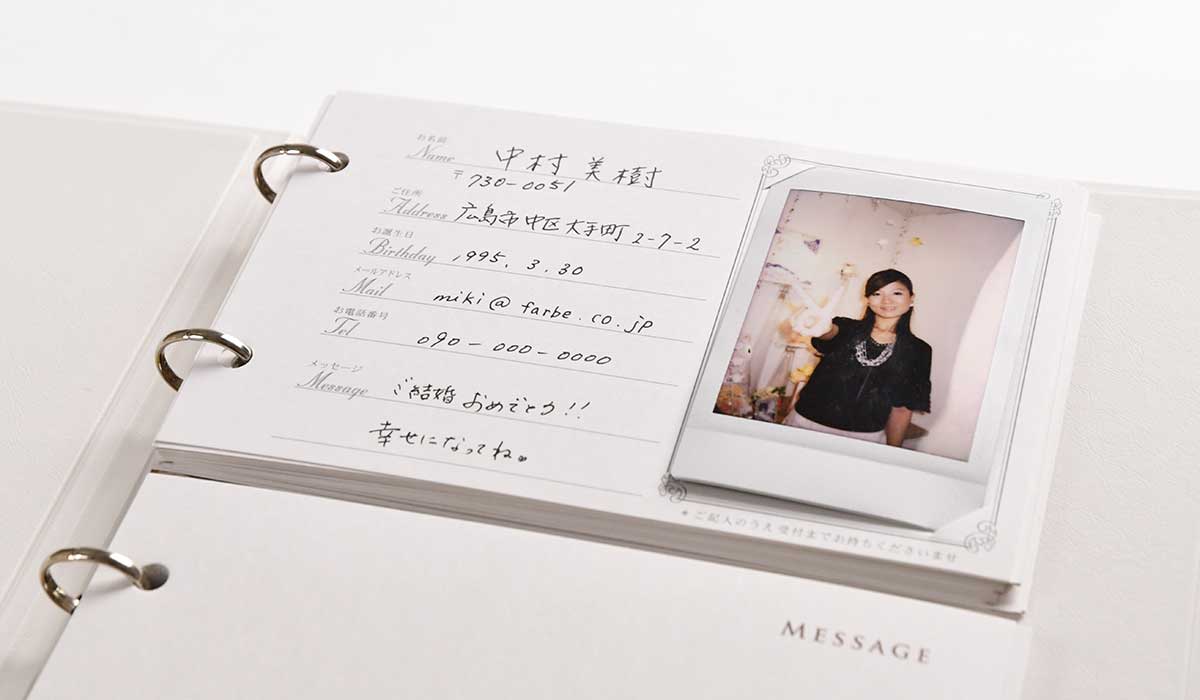 お名前
Name 中村 美樹
〒730-0051
ご住所
Address 広島市中区大手町 2-7-2
お誕生日
Birthday 1995. 3. 30
メールアドレス
Mail miki@farbe.co.jp
お電話番号
Tel 090-000-0000
メッセージ
Message ご結婚 おめでとう!!
幸せになってね。
＊ご記入のうえ受付までお持ちくださいませ
MESSAGE